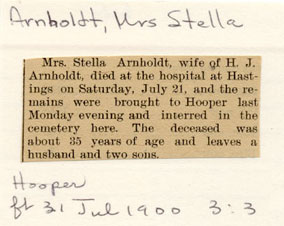 Arnholdt, Mrs Stella
Mrs. Stella Arnholdt, wife of H. J.
Arnholdt, died at the hospital at Hast-
ings on Saturday, July 21, and the re-
mains were brought to Hooper last
Monday evening and interred in the
cemetery here. The deceased was
about 35 years of age and leaves a
husband and two sons.
Hooper
31 Jul 1900 3:3